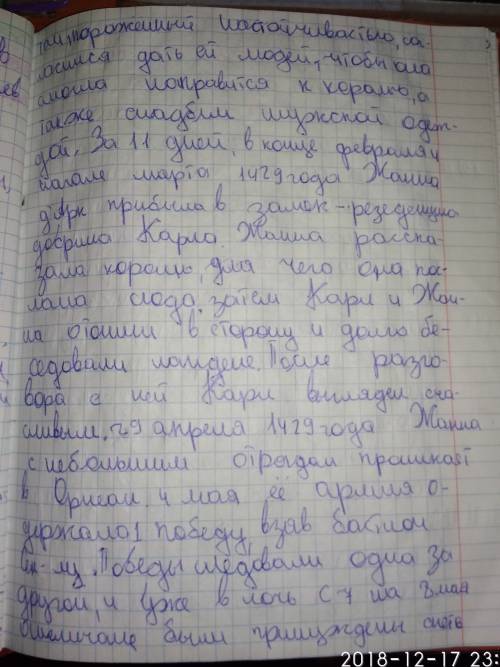 тан, пораженный настойчивостью, со-
ласился дать ей людей, чтобы она
смогла направится к королю, а
также снадбил мужской одеж-
дой. За 11 дней, в конце февраля и
начале марта 1429 года Жанна
д'арк прибыла в замок - резеденцию
добрила Карла. Жанна расска-
зала королю, для чего она пос-
лана сюда, затем Карл и Жан-
на отошли в сторону и долго бе-
седовали наедене. После разго-
вора с ней Карл выглядел сча-
сливым. 29 апреля 1429 года Жанна
с небольшим отрядом проникает
в Орлеан. 4 мая её армия о-
держала 1 победу, взяв бастион
Сен-лу. Победы следовали одна за
другой, и уже в ночь с 7 на 8 мая
были принуждены снять
2018-12-17 23: